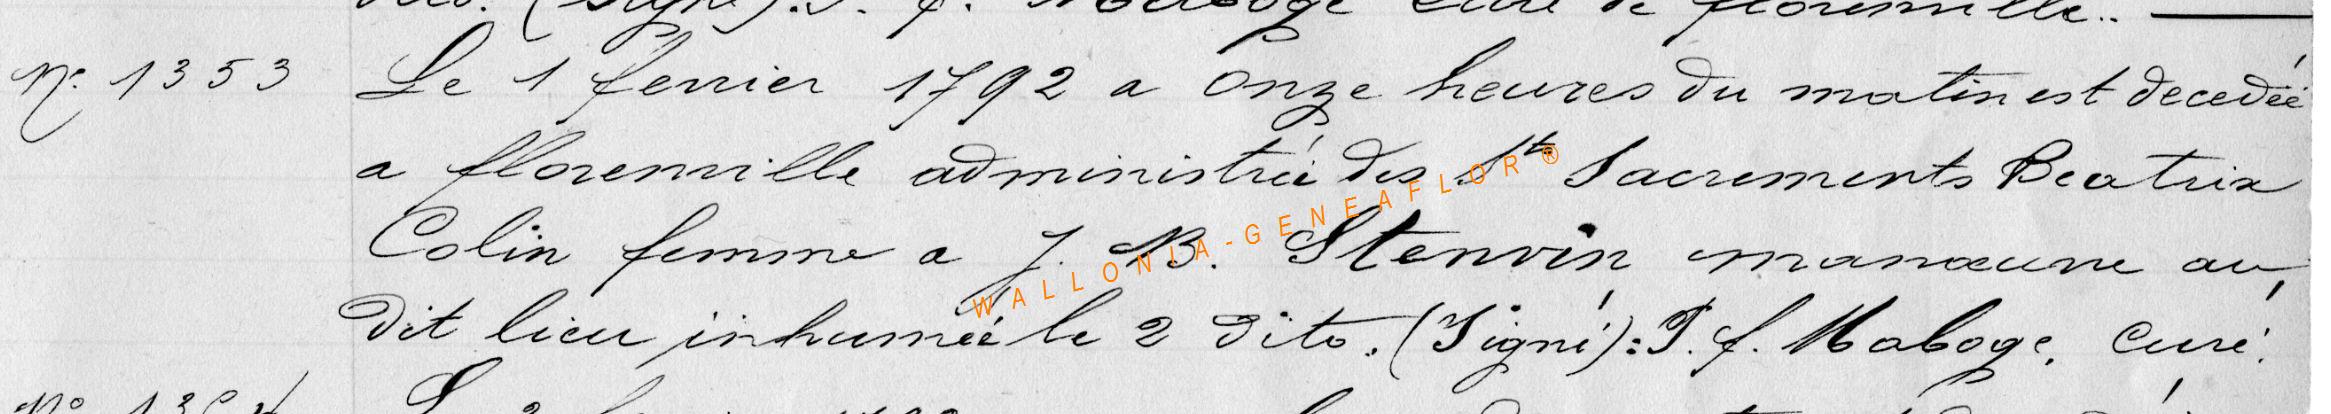 dito. (Signé). J. f. Maboge curé de florenville..
N° 1353 Le 1 fevrier 1792 a onze heures du matin est decedéé
a florenville administréé des Sts Sacrements Beatrix
Colin femme a J. B. Stenvin manœuvre au
dit lieu inhuméé le 2 dito. (Signé): J. f. Maboge. Curé.
WALLONIA-GENEAFLOR®